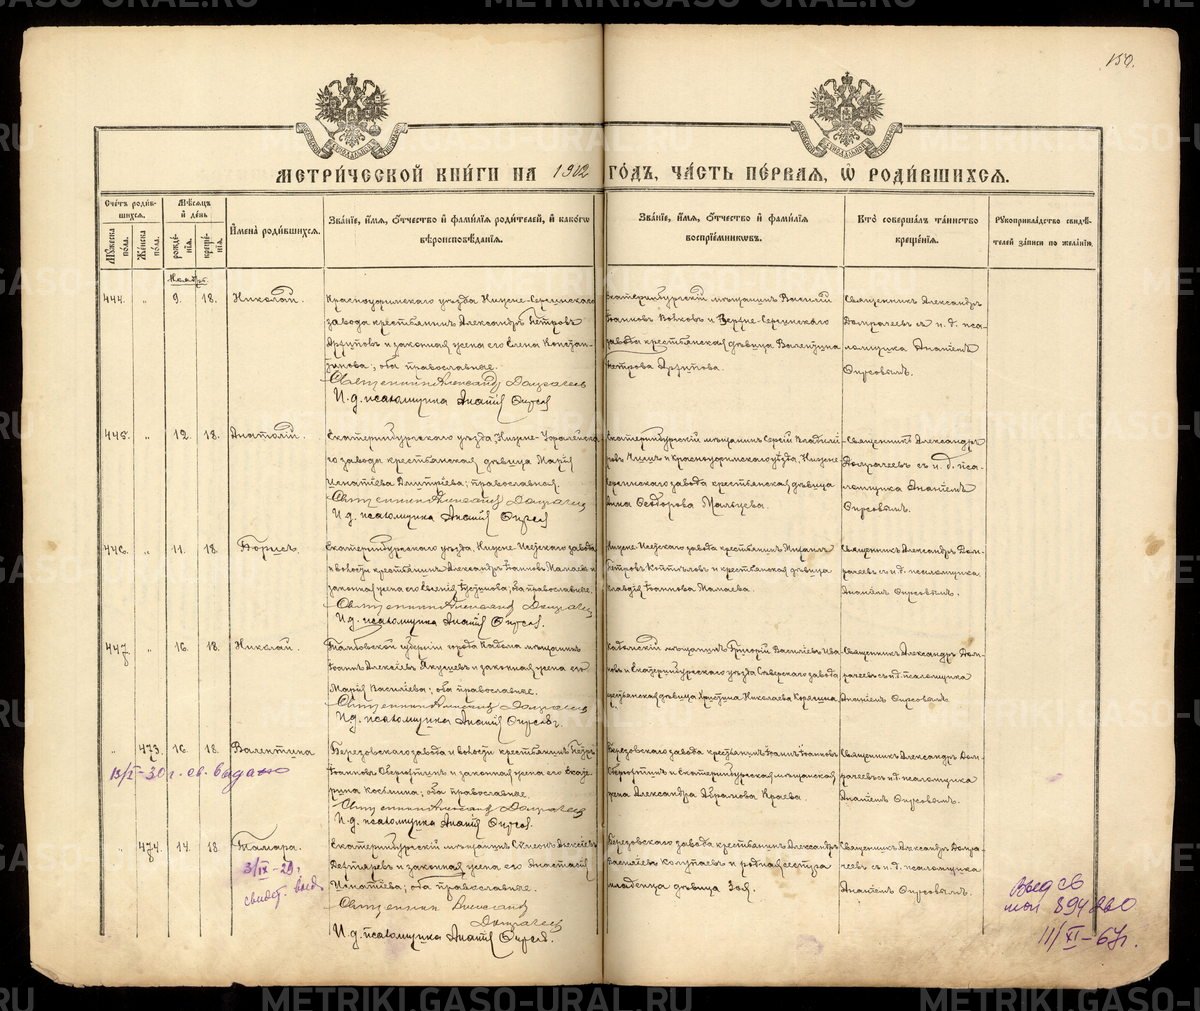 150.
МЕТРИ́ЧЕСКОЙ КНИ́ГИ НА 1902 ГО́ДЪ, ЧА́СТЬ ПЕ́РВАЯ, Ѡ РОДИ́ВШИХСЯ.
Сче́тъ роди́вшихся.
Му́жеска по́ла.
Же́нска по́ла.
Мѣ́сяцъ и́ де́нь
рожде́нія.
креще́нія.
Имена́ роди́вшихся.
Зва́ніе, и́мя, о́тчество и́ фами́лія роди́телей, и́ како́гѡ
вѣроисповѣ́данія.
Зва́ніе, и́мя, о́тчество и́ фами́лія
воспріе́мникѡвъ.
Кто̀ соверша́лъ та́инство
креще́нія.
Рукоприкла́дство свидѣ́-
телей за́писи по жела́нію.
Ноябрь.
444. „ 9. 18. Николай.
Красноуфимскаго уѣзда Нижне-Сергинскаго
завода крестьянинъ Александръ Петровъ
Архиповъ и законная жена его Елена Констан-
тинова; оба православные.
Священникъ Александръ Домрачевъ
И. д. псаломщика Анатій Фирсовъ
Екатеринбургскій мѣщанинъ Василій
Іоанновъ Волковъ и Верхне-Сергинскаго
завода крестьянская дѣвица Валентина
Петрова Архипова.
Священникъ Александръ
Домрачевъ съ и. д. пса-
ломщика Анатіемъ
Фирсовымъ.
445. „ 12. 18. Анатолій.
Екатеринбургскаго уѣзда, Нижне-Уфалейска-
го завода крестьянская дѣвица Марія
Игнатіева Дмитріева; православная.
Священникъ Александръ Домрачевъ
И. д. псаломщика Анатій Фирсовъ
Екатеринбургскій мѣщанинъ Сергій
и Красноуфимскаго уѣзда, Нижне-
Сергинскаго завода крестьянская дѣвица
Анна Ѳеодорова Мальцева.
Священникъ Александръ
Домрачевъ съ и. д. пса-
ломщика Анатіемъ
Фирсовымъ.
446. „ 11. 18. Борисъ.
Екатеринбургскаго уѣзда, Нижне-Исетскаго завода
и волости крестьянинъ Александръ Іоанновъ Мамаевъ и
законная жена его Евгенія; оба православные.
Священникъ Александръ Домрачевъ
И. д. псаломщика Анатій Фирсовъ.
Нижне-Исетскаго завода крестьянинъ Михаилъ
Петровъ и крестьянская дѣвица
Клавдія Іоаннова Мамаева.
Священникъ Александръ Дом-
рачевъ съ и. д. псаломщика
Анатіемъ Фирсовымъ.
447. „ 16. 18. Николай.
Тамбовской губерніи города Кадома мѣщанинъ
Іоаннъ Алексіевъ Якушевъ и законная жена его
Марія Василіева; оба православные.
Священникъ Александръ Домрачевъ
И. д. псаломщика Анатій Фирсовъ.
Кадомскій мѣщанинъ Григорій Василіевъ Ива-
новъ и Екатеринбургскаго уѣзда Сысертскаго завода
крестьянская дѣвица Христина Николаева
Священникъ Александръ Дом-
рачевъ съ и. д. псаломщика
Анатіемъ Фирсовымъ.
„ 473. 16. 18. Валентина
13/I-30 г. св. выдано
Березовскаго завода и волости крестьянинъ Петръ
Іоанновъ и законная жена его Екате-
рина Косьмина; оба православные.
Священникъ Александръ Домрачевъ
И. д. псаломщика Анатій Фирсовъ.
Березовскаго завода крестьянинъ Іоаннъ Іоанновъ
и Екатеринбургская мѣщанская
жена Александра Абрамова Краева.
Священникъ Александръ Дом-
рачевъ съ и. д. псаломщика
Анатіемъ Фирсовымъ.
„ 474. 14. 18. Тамара.
3/IX-29 г.
свидет. выд.
Екатеринбургскій мѣщанинъ Симеонъ Алексіевъ
Дегтяревъ и законная жена его Анастасія
Игнатіева; оба православные.
Священникъ
Домрачевъ
И. д. псаломщика Анатій Фирсовъ.
Березовскаго завода крестьянинъ Александръ
Василіевъ и родная сестра
младенца дѣвица Зоя.
Священникъ Александръ Домра-
чевъ съ и. д. псаломщика
Анатіемъ Фирсовымъ.
Выд св
11/XI-67 г.
METRIKI.GASO-URAL.RU